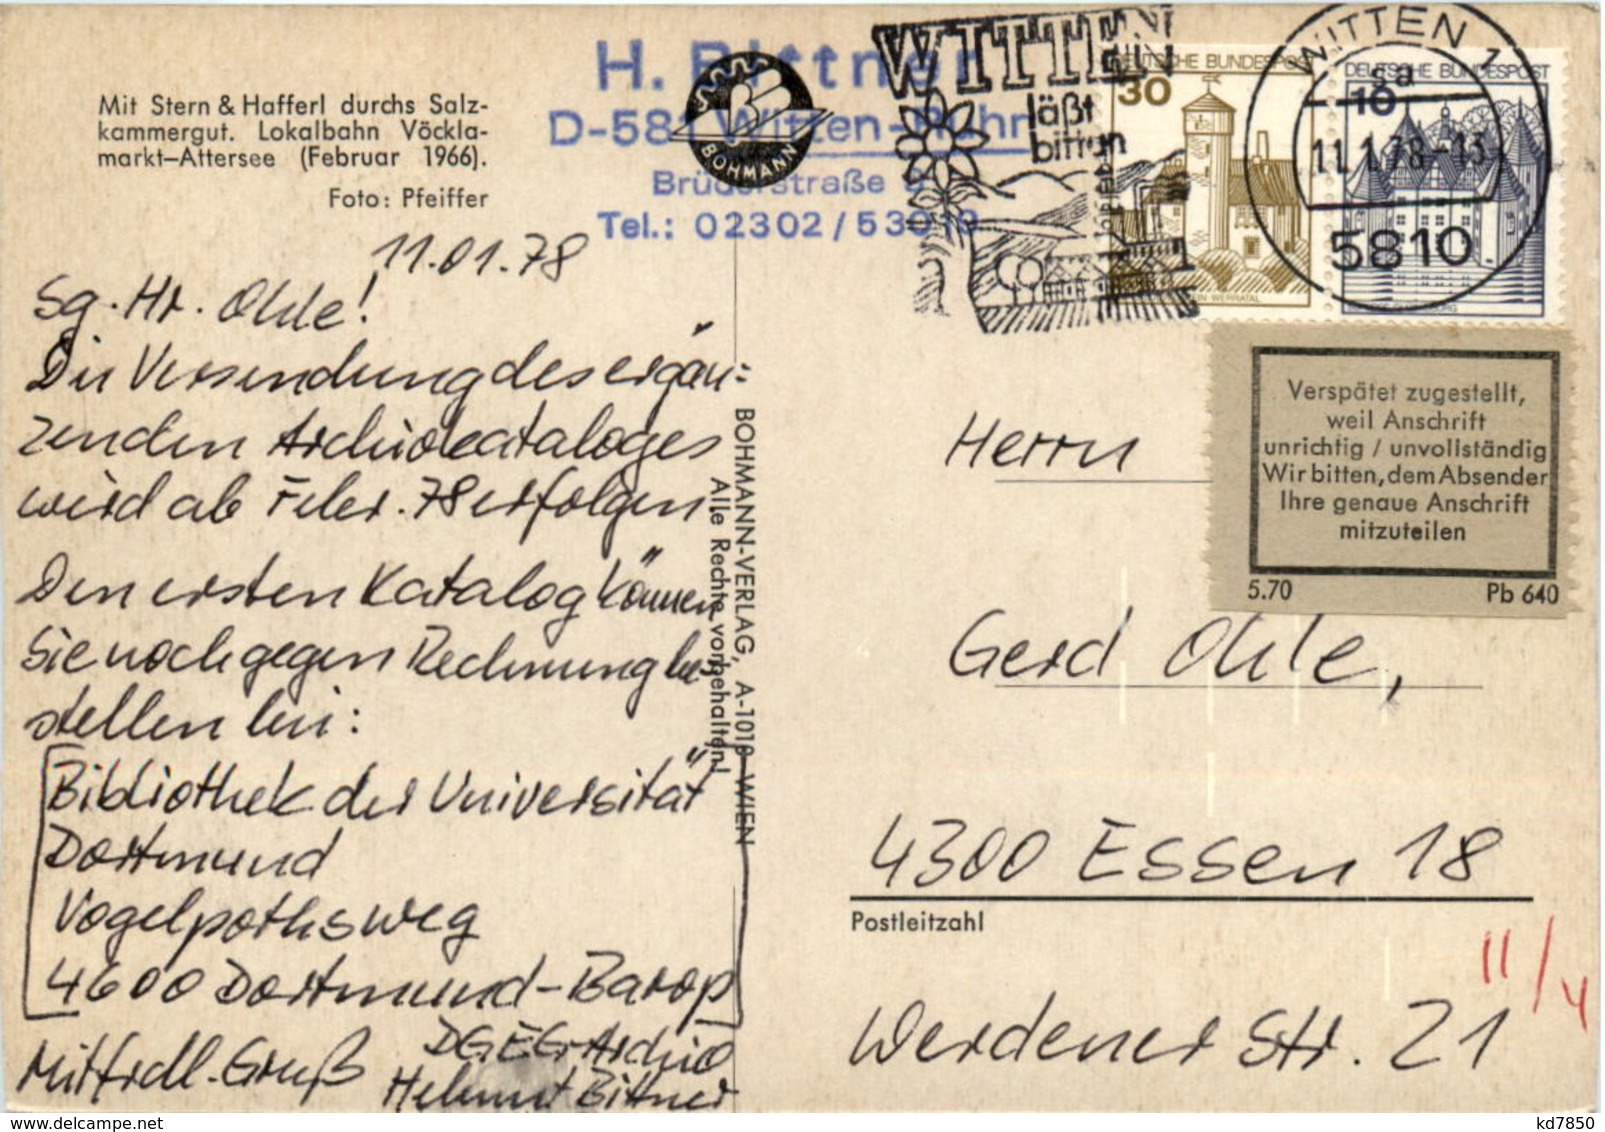 Mit Stern & Hafferl durchs Salz-
kammergut. Lokalbahn Vöckla-
markt–Attersee (Februar 1966).
Foto: Pfeiffer
H. Bittner
D-581 Witten-Ruhr
Brüderstraße
Tel.: 02302 / 530
BOHMANN
WITTEN
läßt
bitten
DEUTSCHE BUNDESPOST
30
WERRATAL
DEUTSCHE BUNDESPOST
10
WITTEN 1
sa
11.1.78-13
5810
11.01.78
Sg. Hr. Ohle!
Die Versendung des ergän=
zenden Archivkataloges
wird ab Feber. 78 erfolgen.
Den ersten Katalog können
Sie noch gegen Rechnung be-
stellen bei:
Bibliothek der Universität
Dortmund
Vogelpothsweg
4600 Dortmund-Barop
Mit frdl. Gruß
DGEG-Archiv
Helmut Bittner
BOHMANN-VERLAG, A-1010 WIEN
Alle Rechte vorbehalten!
Verspätet zugestellt,
weil Anschrift
unrichtig / unvollständig
Wir bitten, dem Absender
Ihre genaue Anschrift
mitzuteilen
5.70 Pb 640
Herrn
Gerd Ohle,
4300 Essen 18
Postleitzahl
11/4
Werdener Str. 21
kd7850
www.delcampe.net